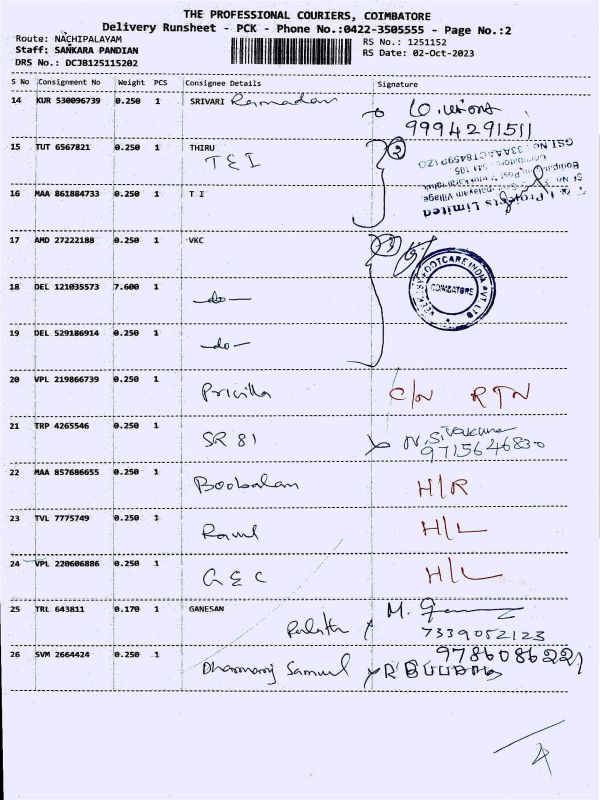 THE PROFESSIONAL COURIERS, COIMBATORE
Delivery Runsheet - PCK - Phone No.:0422-3505555 - Page No.:2
Route: NACHIPALAYAM RS No.: 1251152
Staff: SANKARA PANDIAN RS Date: 02-Oct-2023
DRS No.: DCJB125115202
S No Consignment No Weight PCS Consignee Details Signature
14 KUR 530096739 0.250 1 SRIVARI Ramadan
9994291511
15 TUT 6567821 0.250 1 THIRU 2
T E I
GST NO : 33AAACT8459P1ZO
Coimbatore - 641 105
16 MAA 861884733 0.250 1 T I
Projects Limited
17 AMD 27222188 0.250 1 VKC 3
FOOTCARE INDIA PVT. LTD
COIMBATORE
18 DEL 121035573 7.600 1 -do-
19 DEL 529186914 0.250 1 -do-
20 VPL 219866739 0.250 1 Pricilla C/N RTN
21 TRP 4265546 0.250 1 SR 81 N. Sivakumar
9715646830
22 MAA 857686655 0.250 1 Boobalan H/R
23 TVL 7775749 0.250 1 Raml H/L
24 VPL 220606886 0.250 1 G E C H/L
25 TRL 643811 0.170 1 GANESAN M.
7339052123
26 SVM 2664424 0.250 1 Dharmaraj Samuel 9786086221